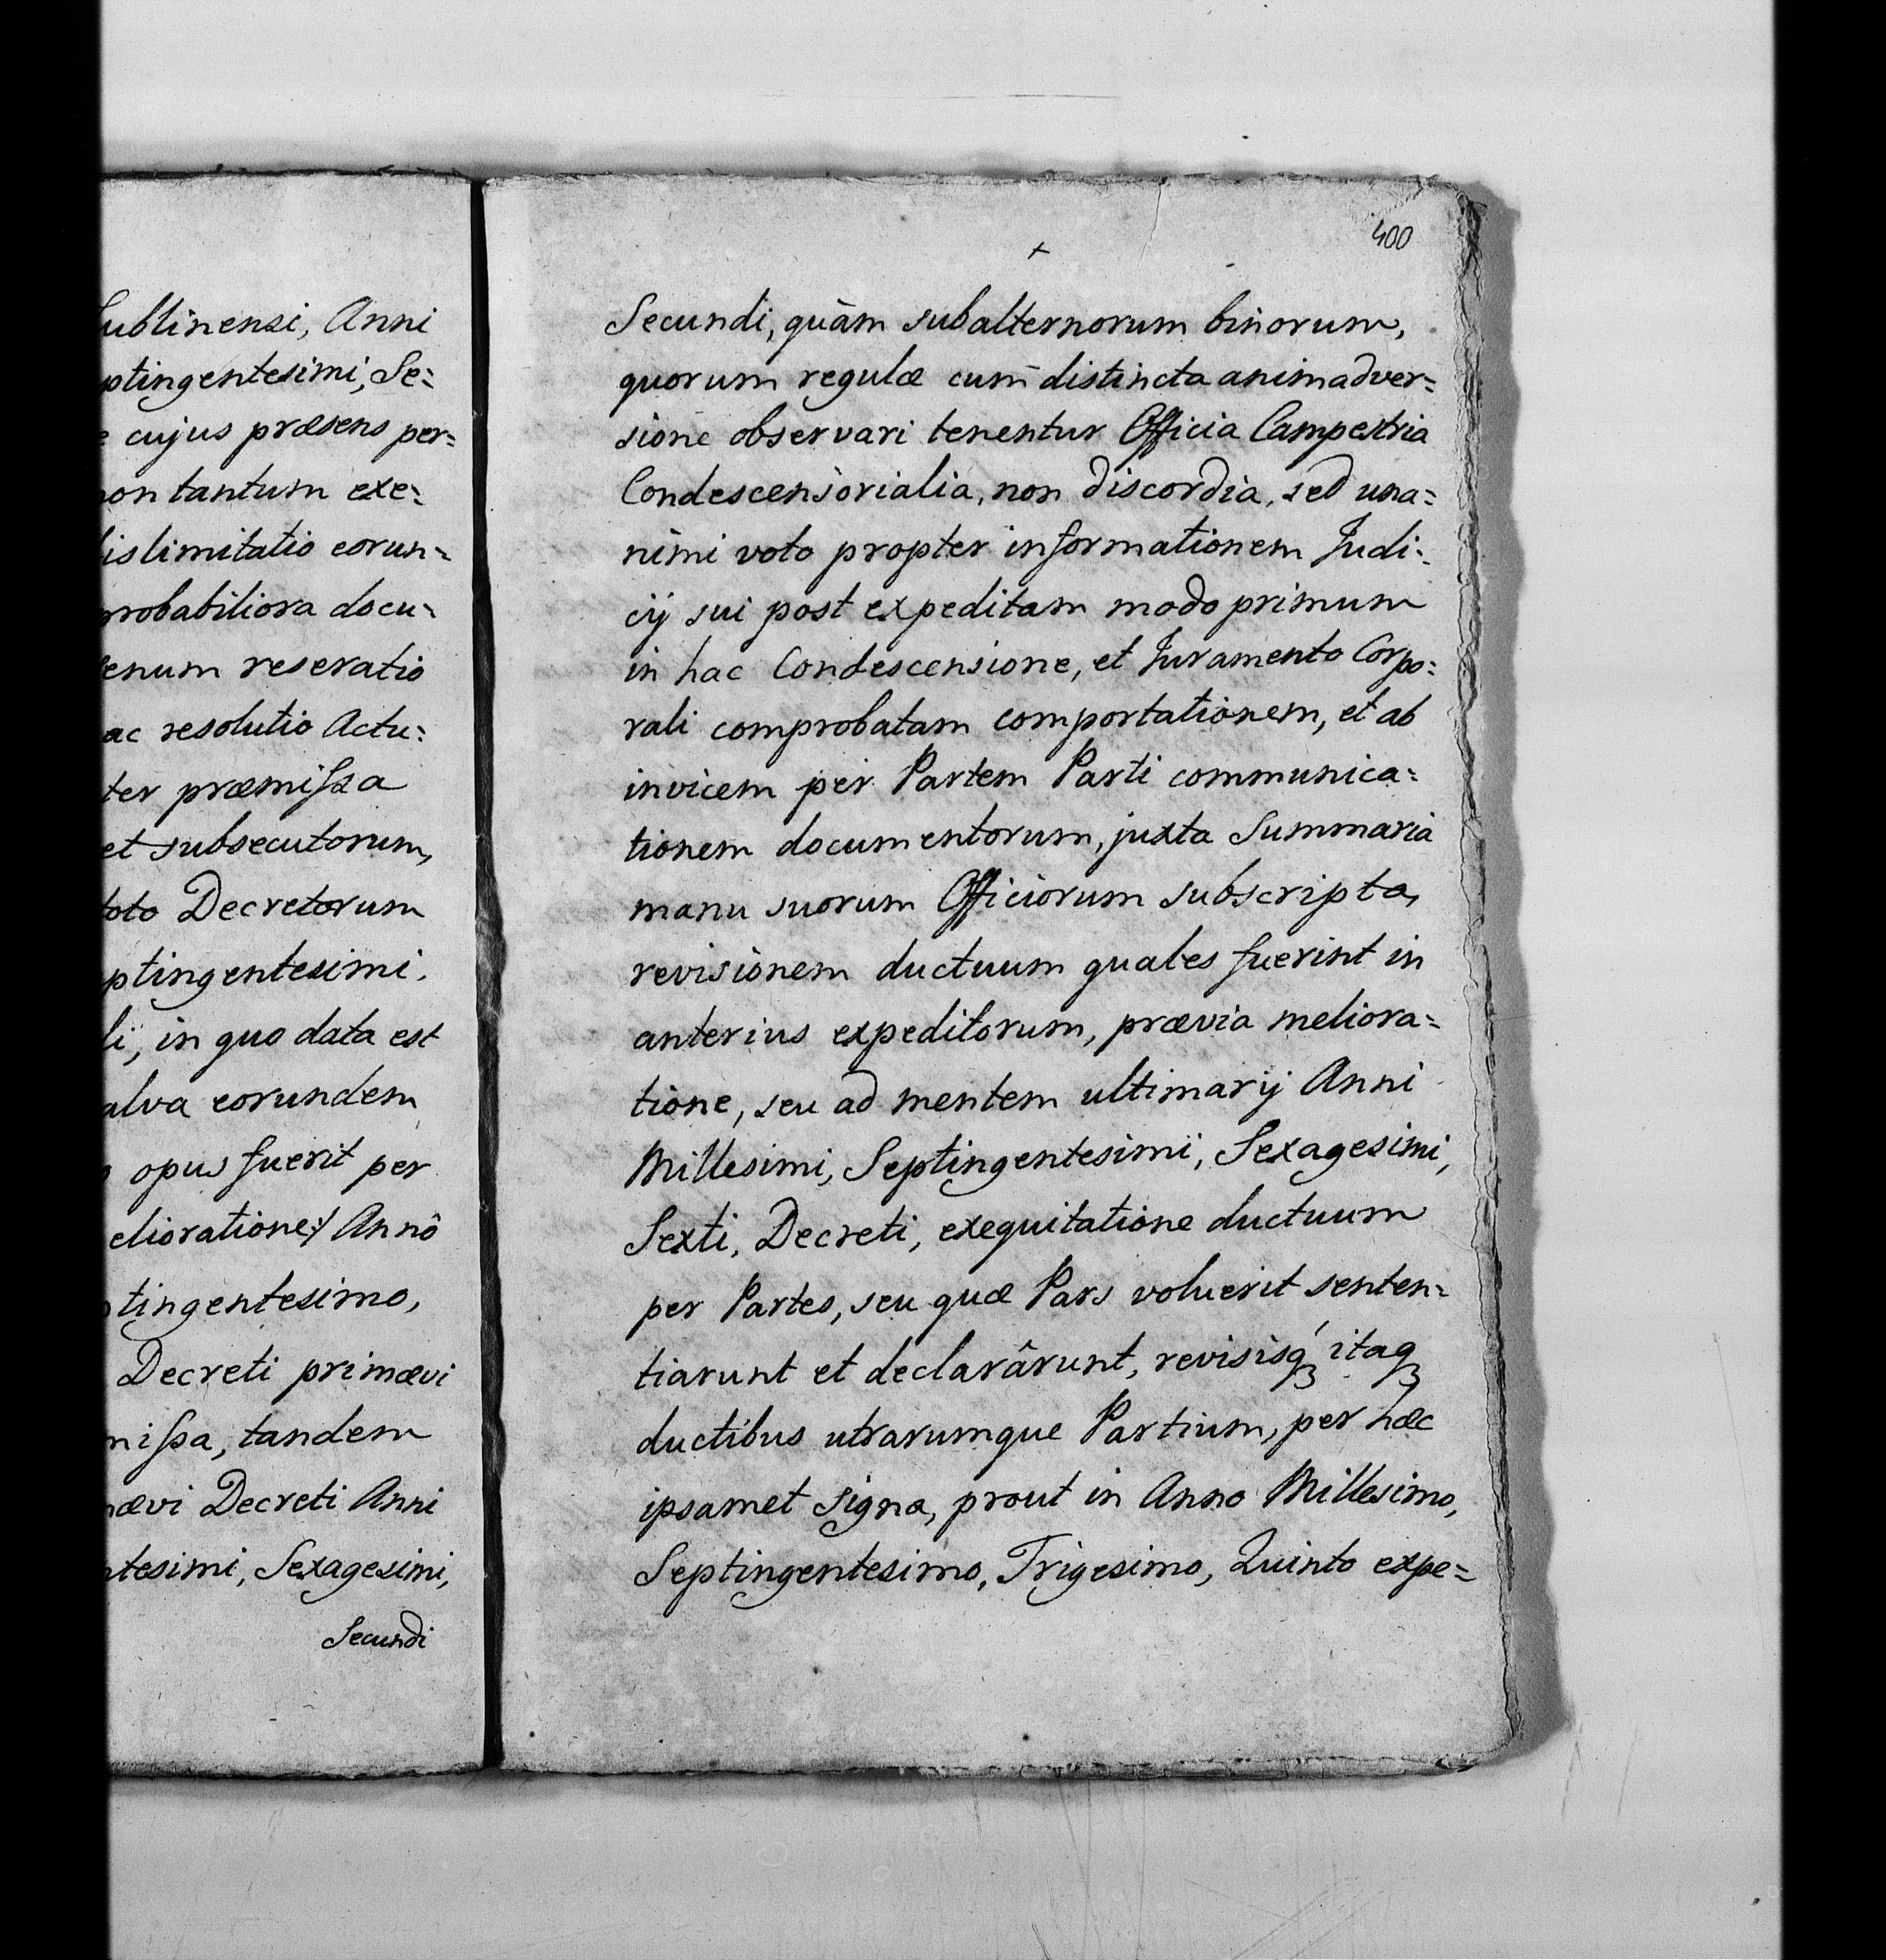 ublinensi, Anni
ptingentesimi, Se=
cujus præsens per=
non tantum exe=
islimitatio eorun=
probabiliora docu=
enum reseratio
ac resolutio Actu=
ter præmissa
et subsecutorum,
toto Decretorum
ptingentesimi.
li, in quo data est
alva eorundem
opus fuerit per
elioratione:/ Annô
tingentesimo,
Decreti primævi
missa, tandem
mævi Decreti Anni
ntesimi, Sexagesimi,
Secundi
400
+
Secundi, quàm subalternorum binorum,
quorum regulæ cum distincta animadver=
sione observari tenentur Officia Campestria
Condescensorialia, non discordia, sed una=
nimi voto propter informationem Judi=
cij sui post expeditam modo primum
in hac Condescensione, et Juramento Corpo=
rali comprobatam comportationem, et ab
invicem per Partem Parti communica=
tionem documentorum, juxta Summaria
manu suorum Officiorum subscripta,
revisionem ductuum quales fuerint in
anterius expeditorum, prævia meliora=
tione, seu ad mentem ultimarij Anni
Millesimi, Septingentesimi, Sexagesimi,
Sexti, Decreti, exequitatione ductuum
per Partes, seu quæ Pars voluerit senten=
tiarunt et declarârunt, revisisqꝫ itaqꝫ
ductibus utrarumque Partium, per hæc
ipsamet signa, prout in Anno Millesimo,
Septingentesimo, Trigesimo, Quinto expe=